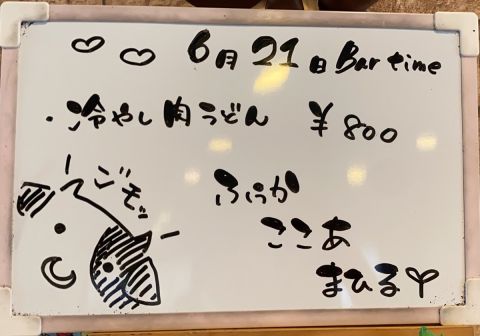 6月21日 Bar time
・冷やし肉うどん ¥800
ゴモッ
ふうか
ここあ
まひる